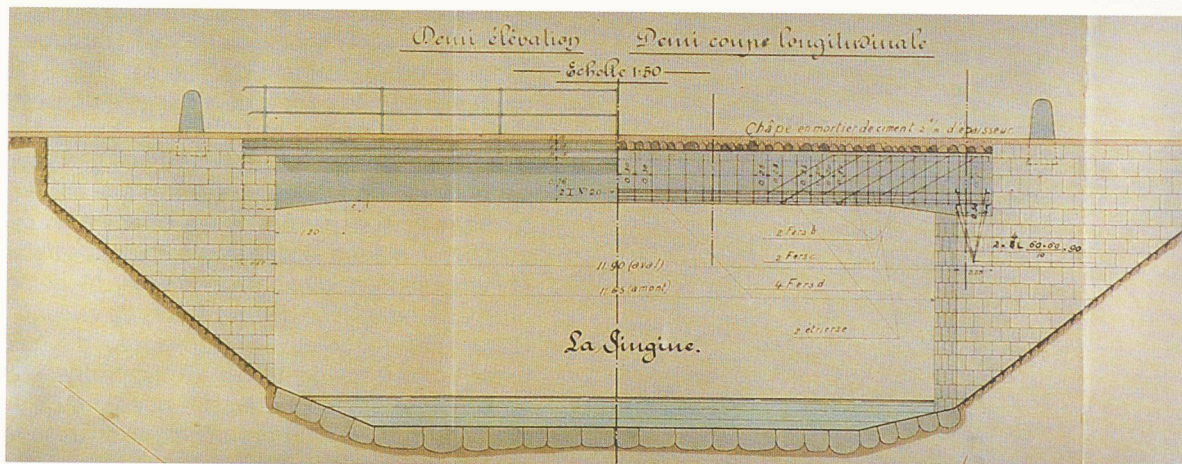 Demi élévation
Demi coupe longitudinale
Echelle 1:50
Châpe en mortier de ciment d'épaisseur.
2 I Nº 20
1.20
2 Fers b
2 Fers c
4 Fers d
2 étriers e
11.90 (aval)
11.65 (amont)
60.60 . 90
10
La Singine.